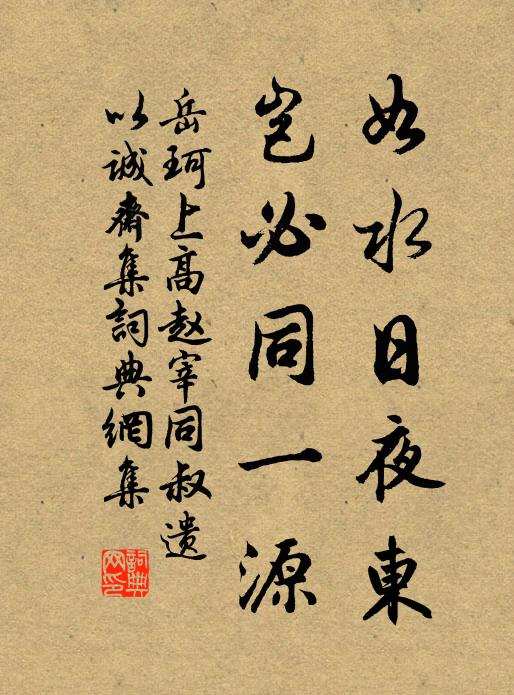 如水日夜東
豈必同一源
岳珂上高趙宰同叔遺
以誠齋集詞典網集
詞典網印